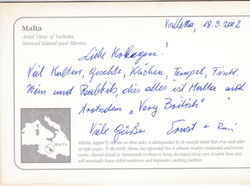 Malta
Aerial View of Valletta,
Manoel Island and Sliema
Valletta, 18.3.2002
Liebe Kollegen!
Viel Kultur, Geschichte, Kirchen, Tempel, Fische,
Wein und Rabbits, dies alles ist Malta und
trotzdem „Very British"
Viele Grüße Ernst +
MALTA
Valletta, lapped by the sea on three sides, is distinguished by its straight street that cross each other
at right angles. To the north, Sliema has expanded into a modern residential and tourist
centre. Manoel Island in Marsamxett Harbour is being developed along very modern lines and will
eventually boast stylish residences and impressive yachting facilities.